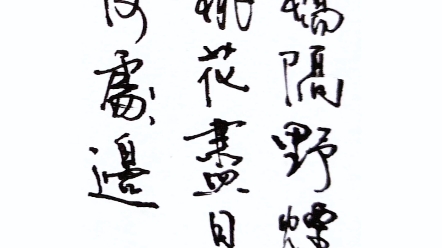 橋隔野煙
桃花盡日
何處邊